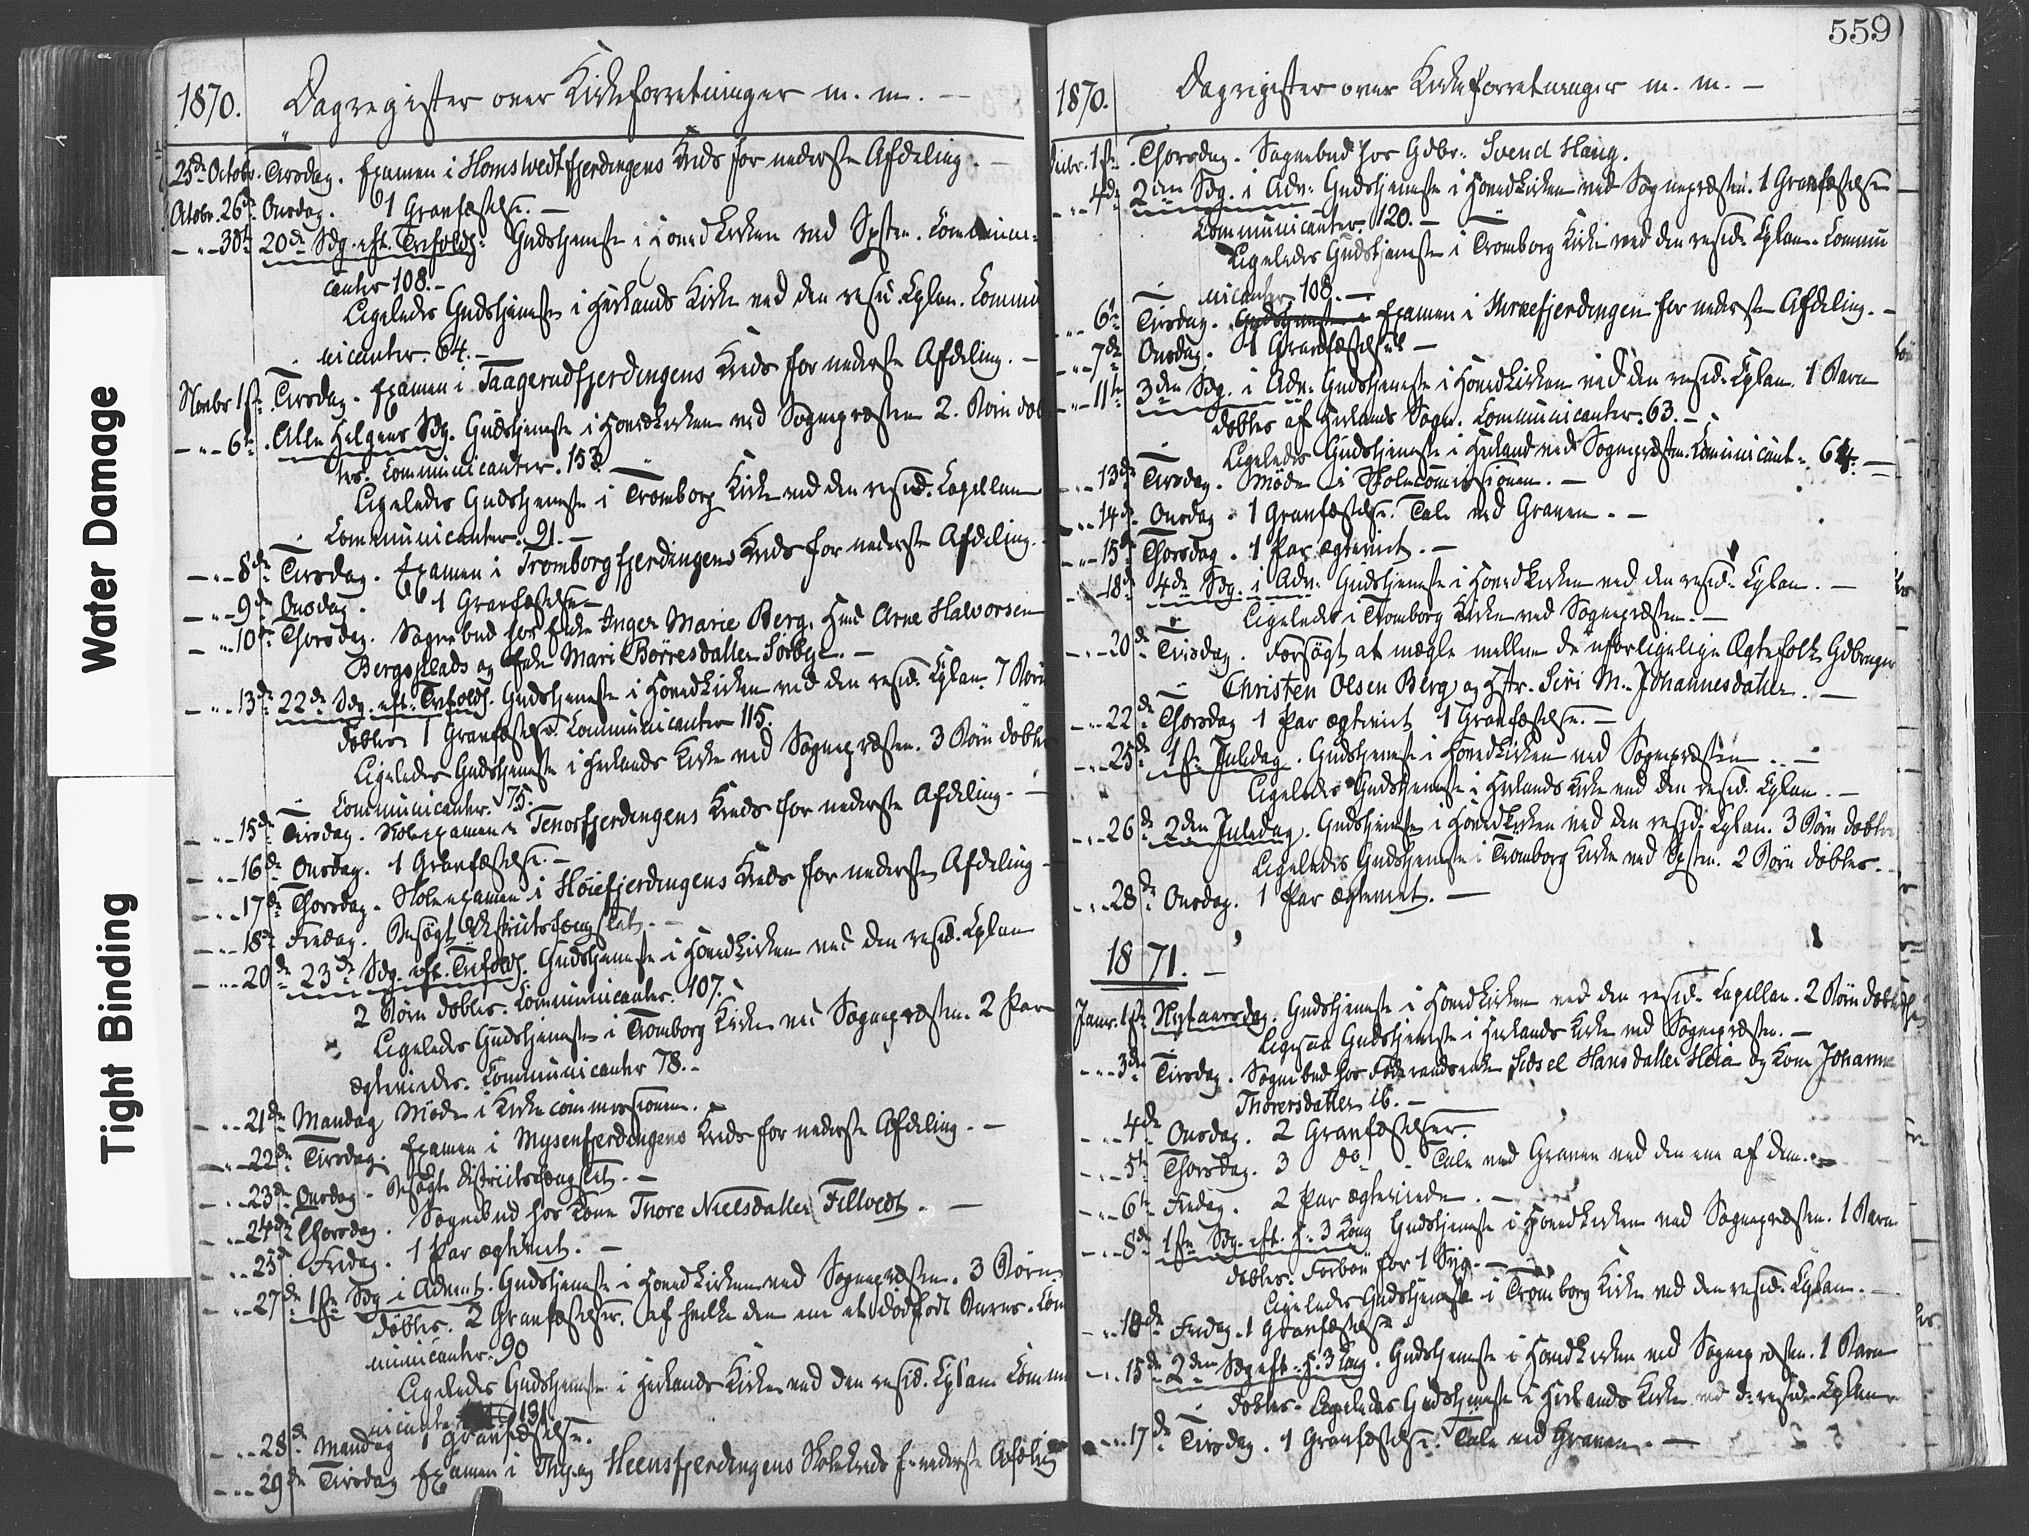 1870. Dagregister over Kirkeforretninger m. m. —
25de Octobr. Tirsdag. Examen i Homstvedtfjerdingens Kreds for nederste Afdeling. —
Octobr. 26de Onsdag. 1 Gravfæstelse. —
— " — 30te 20de Sdg. eft. Trefoldh: Gudstjeneste i Hovedkirken ved Spsten. Commune-
canter 108. —
Ligeledes Gudstjeneste i Herlands Kirke ved den resid. Cplan. Commu
nicanter. 64. —
Novbr 1ste Tirsdag. Examen i Taagerudfjerdingens Kreds for nederste Afdeling. —
— " — 6te Alle Helgens Sdg. Gudstjeneste i Hovedkirken ved Sognepræsten 2. Børn døb
tes. Communicanter. 153.
Ligeledes Gudstjeneste i Tromborg Kirke ved den resid. Capellan
Communicanter. 91. —
— " — 8de Tirsdag. Examen i Tromborgfjerdingens Kreds for nederste Afdeling.
— " — 9de Onsdag. 1 Gravfæstelse —
— " — 10de Thorsdag. Sognebud hos Enke Inger Marie Berg. Hmd Arne Halvorsen
Bergsplads og Enke Mari Børresdatter Sørbye. —
— " — 13de 22de Sdg. eft. Trefoldh. Gudstjeneste i Hovedkirken ved den resid. Cplan. 7 Børn
døbtes 1 Gravfæstelse. Communicanter 115.
Ligeledes Gudstjeneste i Herlands Kirke ved Sognepræsten. 3 Børn døbtes
Communicanter. 75.
— " — 15de Tirsdag. Skoleexamen i Tenorfjerdingens Kreds for nederste Afdeling. —
— " — 16de Onsdag. 1 Gravfæstelse. —
— " — 17de Thorsdag. Skoleexamen i Høiefjerdingens Kreds for nederste Afdeling —
— " — 18de Fredag. Besøgt Districtsfængslet. —
— " — 20de 23de Sdg. eft. Trefoldh. Gudstjeneste i Hovedkirken ved den resid. Cplan
2 Børn døbtes. Communicanter. 107.
Ligeledes Gudstjeneste i Tromborg Kirke ved Sognepræsten. 2 Par
ægteviedes. Communicanter 78. —
— " — 21de Mandag Møde i Kirkecommissionen. —
— " — 22de Tirsdag. Examen i Mysenfjerdingens Kreds for nederste Afdeling. —
— " — 23de Onsdag. Besøgte Districtsfængslet. —
— " — 24de Thorsdag. Sognebud hos Kone Thore Nielsdatter Filtvedt. —
— " — 25de Fredag. 1 Par ægteviet. —
— " — 27de 1ste Sdg i Advent. Gudstjeneste i Hovedkirken ved Sognepræsten. 3 Børn
døbtes. 2 Gravfæstelser. af hvilke den ene et dødfødt Barns. Com
municanter. 90
Ligeledes Gudstjeneste i Herlands Kirke ved den resid. Cplan. Commu
nicanter 131
— " — 28de Mandag 1 Gravfæstelse.
— " — 29de Tirsdag Examen i Heensfjerdingens Skolekreds f. nederste Afdeling
559
1870. Dagregister over Kirkeforretninger m. m. —
Decbr. 1ste Thorsdag. Sognebud hos Gdbr. Svend Haug.
— " — 4de 2den Sdg. i Adv. Gudstjeneste i Hovedkirken ved Sognepræsten. 1 Gravfæstelse
Communicanter. 120. —
Ligeledes Gudstjeneste i Tromborg Kirke ved den resid. Cplan. Commu
nicanter. 108. —
— " — 6te Tirsdag. Gudstjeneste i Examen i Moraefjerdingen for nederste Afdeling. —
— " — 7de Onsdag. 1 Gravfæstelse —
— " — 11te 3den Sdg. i Adv. Gudstjeneste i Hovedkirken ved den resid. Cplan. 1 Barn
døbtes af Herlands Sogn. Communicanter. 63. —
Ligeledes Gudstjeneste i Herland ved Sognepræsten. Communicant. 64. —
— " — 13de Tirsdag. Møde i Skolecommissionen. —
— " — 14de Onsdag. 1 Gravfæstelse. Tale ved Graven. —
— " — 15de Thorsdag. 1 Par ægteviet. —
— " — 18de 4de Sdg. i Adv. Gudstjeneste i Hovedkirken ved den resid. Cplan. —
Ligeledes i Tromborg Kirke ved Sognepræsten. —
— " — 20de Tirsdag. Forsøgt at mægle mellem de uforligelige Ægtefolk Gdbruger
Christen Olsen Berg og Hstr. Siri M. Johannesdatter. —
— " — 22de Thorsdag 1 Par ægteviet 1 Gravfæstelse. —
— " — 25de 1ste Juledag. Gudstjeneste i Hovedkirken ved Sognepræsten. —
Ligeledes Gudstjeneste i Herlands Kirke ved den resid. Cplan. —
— " — 26de 2den Juledag. Gudstjeneste i Hovedkirken ved den resid. Cplan. 3 Børn døbtes
Ligeledes Gudstjeneste i Tromborg Kirke ved Spsten. 2 Børn døbtes. —
— " — 28de Onsdag. 1 Par ægteviet. —
1871. —
Janr. 1ste Nytaarsdag. Gudstjeneste i Hovedkirken ved den resid. Capellan. 2 Børn døbtes
Ligesaa Gudstjeneste i Herlands Kirke ved Sognepræsten. —
— " — 3de Tirsdag. Sognebud hos Føderaadsenke Sidsel Hansdatter Heia og Kone Johanne
Thorersdatter ib. —
— " — 4de Onsdag. 2 Gravfæstelser.
— " — 5te Thorsdag. 3 do — Tale ved Graven ved den ene af dem. —
— " — 6te Fredag. 2 Par ægteviede. —
— " — 8de 1ste Sdg. eft. H. 3 Kong Gudstjeneste i Hovedkirken ved Sognepræsten. 1 Barn
døbtes. Forbøn for 1 Syg. —
Ligeledes Gudstjeneste i Tromborg Kirke ved den resid. Cplan. —
— " — 13de Fredag. 1 Gravfæstelse
— " — 15de 2den Søg eft. H. 3 Kong. Gudstjeneste i Hovedkirken ved Sognepræsten. 1 Barn
døbtes. Ligeledes Gudstjeneste i Herlands Kirke ved d. resid. Cplan
— " — 17de Tirsdag. 1 Gravfæstelse. Tale ved Graven. —
Water Damage
Tight Binding